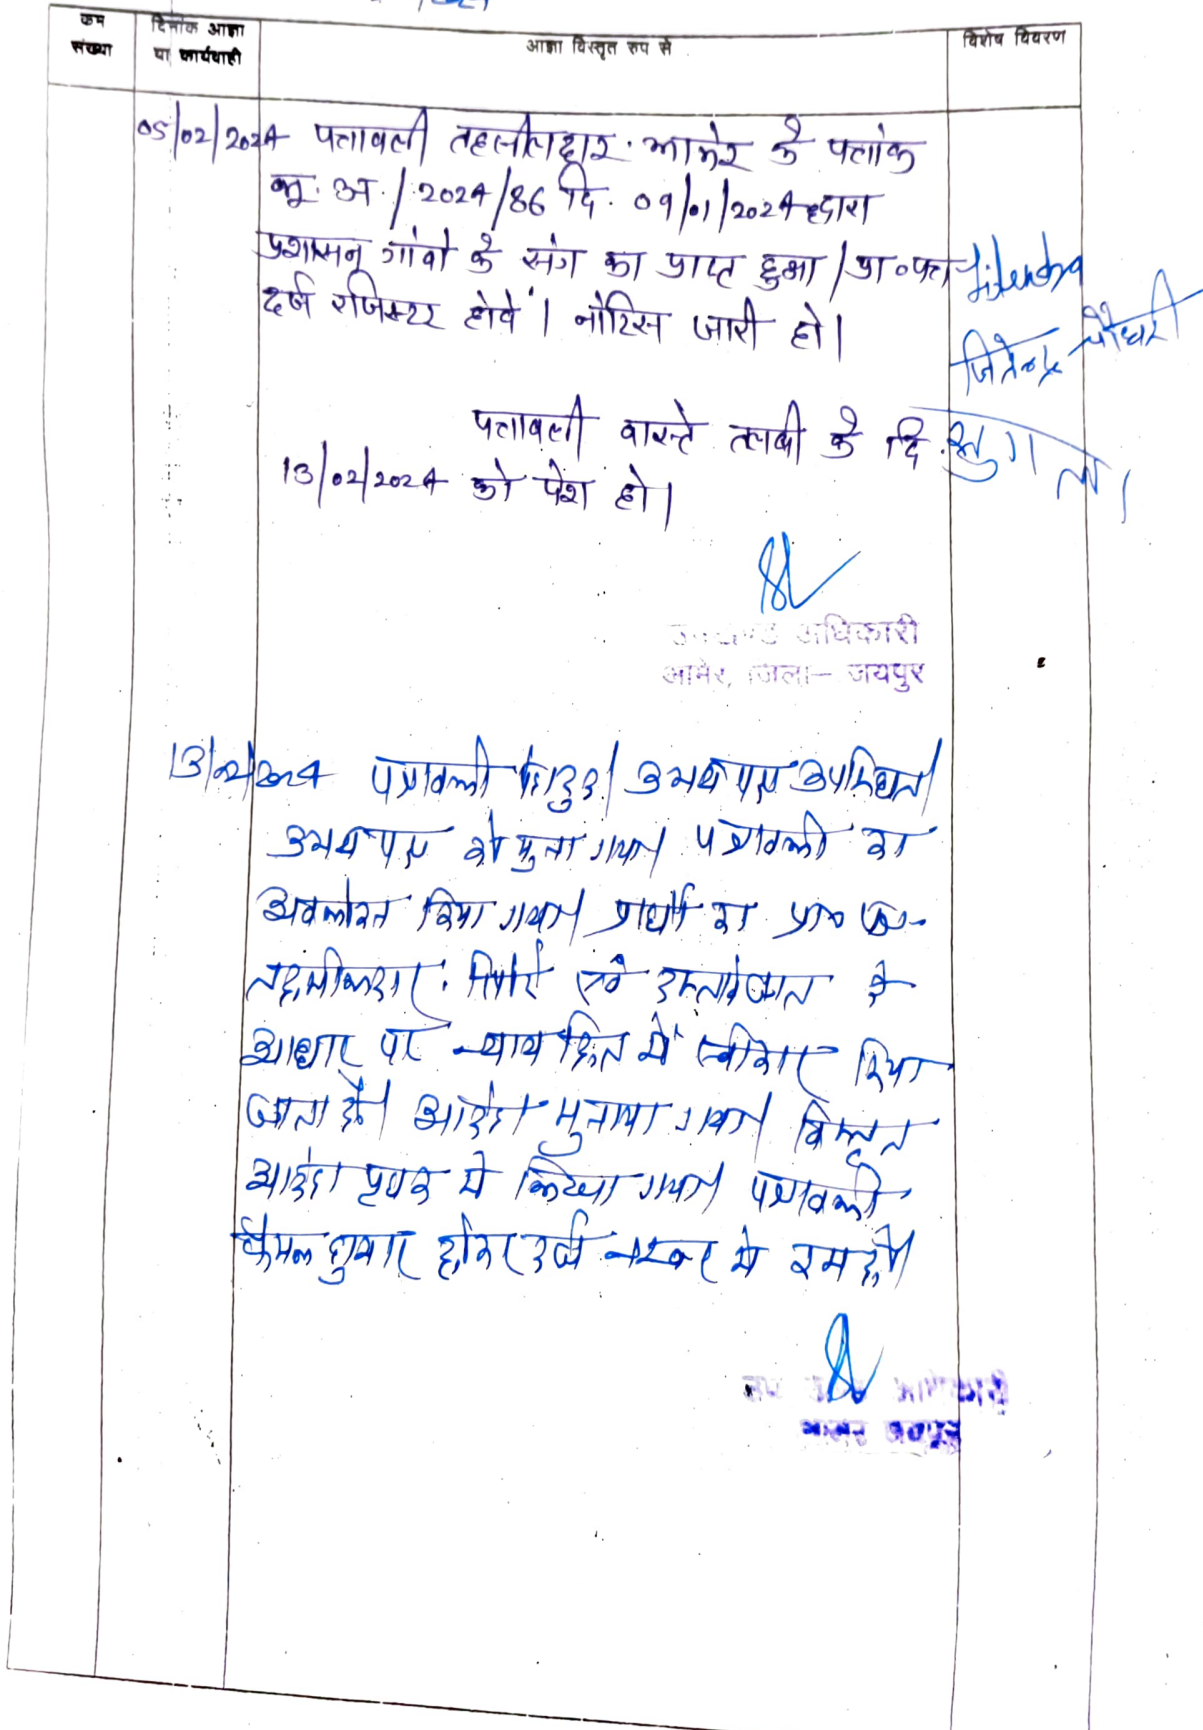 कम संख्या
दिनांक आज्ञा या कार्यवाही
आज्ञा विस्तृत रुप से
विशेष विवरण
05/02/2024 पत्रावली तहसीलदार आमेर के पत्रांक
भू. अ./2024/86 दि. 09/01/2024 द्वारा
प्रशासन गांवो के संग का प्राप्त हुआ। प्रा०पत्र
दर्ज रजिस्टर होवे। नोटिस जारी हो।
Jitendra
जितेन्द्र चौधरी
पत्रावली वास्ते तलबी के दि.
13/02/2024 को पेश हो।
उपखण्ड अधिकारी
आमेर, जिला- जयपुर
13/02/2024 पत्रावली पेश हुई। उभय पक्ष उपस्थित।
उभय पक्ष को सुना गया। पत्रावली का
अवलोकन किया गया। प्रार्थी का प्रा० पत्र
तहसीलदार रिपोर्ट एवं दस्तावेजात के
आधार पर न्याय हित में स्वीकार किया
जाता है। आदेश सुनाया गया। विस्तृत
आदेश पृथक से लिखा गया। पत्रावली
फैसल शुमार होकर दर्ज नम्बर से कम हो।